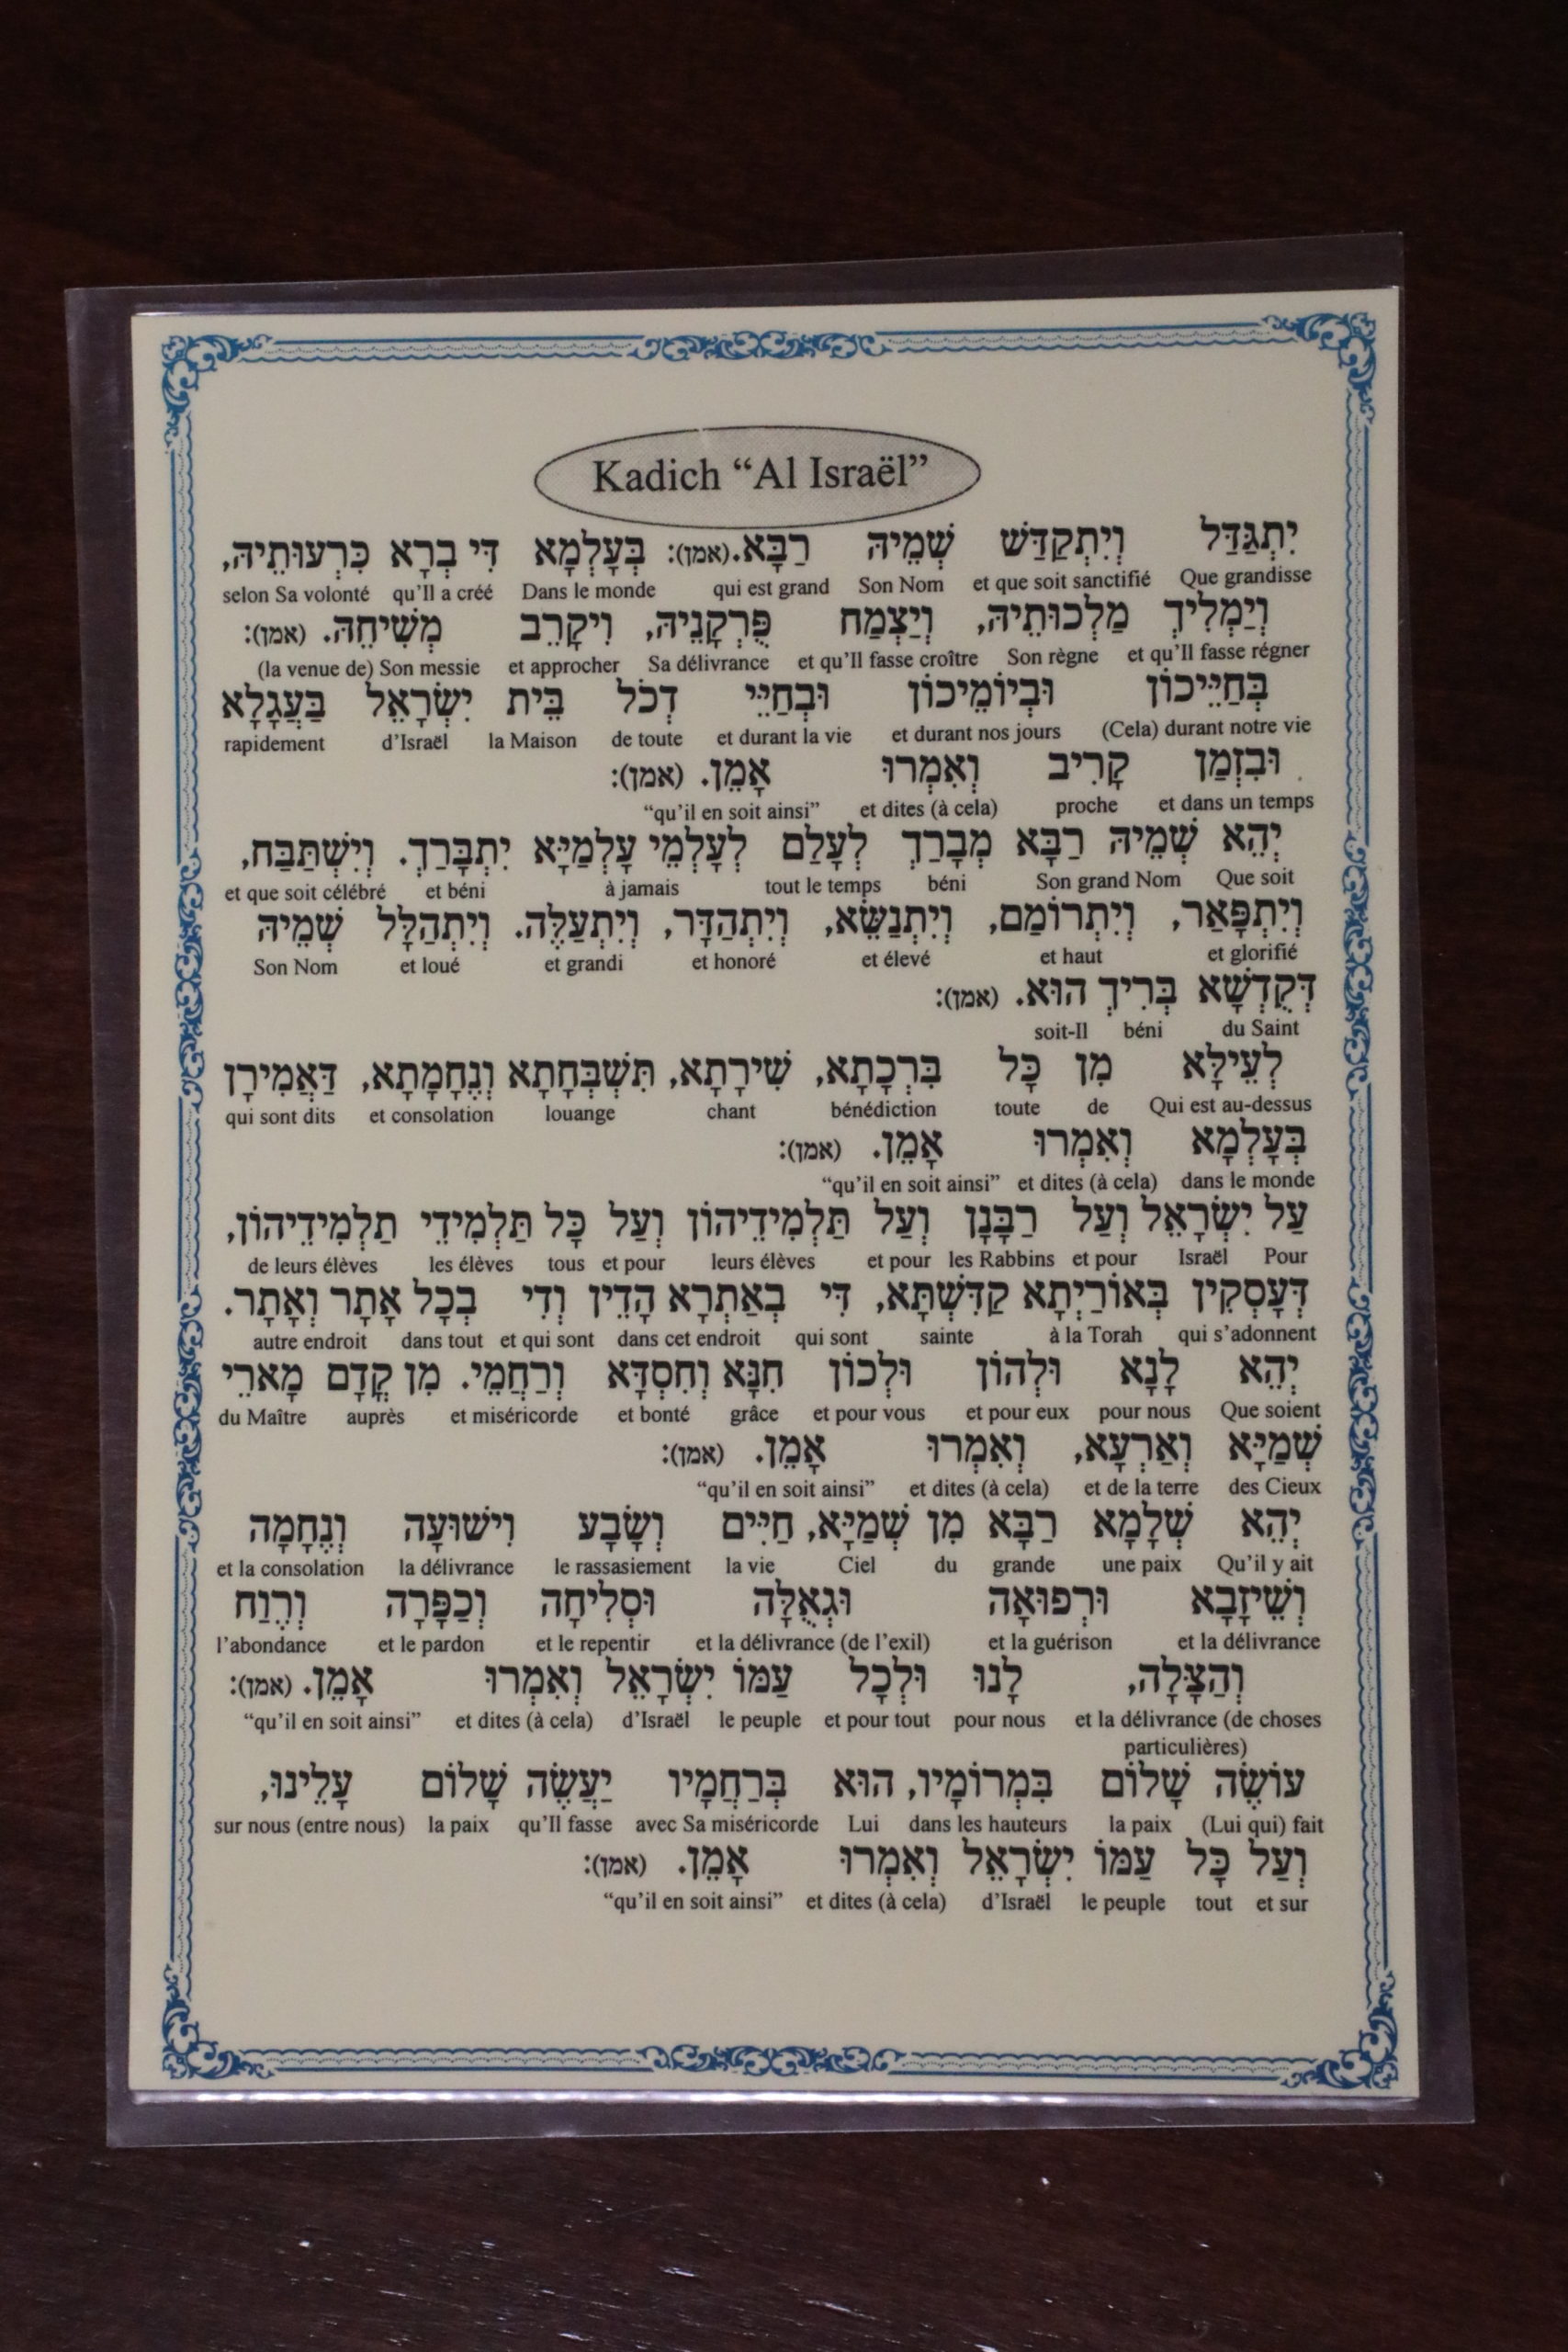 Kadich “Al Israël”
יִתְגַּדַּל וְיִתְקַדַּשׁ שְׁמֵיהּ רַבָּא. (אמן): בְּעָלְמָא דִּי בְרָא כִּרְעוּתֵיהּ,
Que grandisse et que soit sanctifié Son Nom qui est grand Dans le monde qu’Il a créé selon Sa volonté
וְיַמְלִיךְ מַלְכוּתֵיהּ, וְיַצְמַח פֻּרְקָנֵיהּ, וִיקָרֵב מְשִׁיחֵהּ. (אמן):
et qu’Il fasse régner Son règne et qu’Il fasse croître Sa délivrance et approcher (la venue de) Son messie
בְּחַיֵּיכוֹן וּבְיוֹמֵיכוֹן וּבְחַיֵּי דְכֹל בֵּית יִשְׂרָאֵל בַּעֲגָלָא
(Cela) durant notre vie et durant nos jours et durant la vie de toute la Maison d’Israël rapidement
וּבִזְמַן קָרִיב וְאִמְרוּ אָמֵן. (אמן):
et dans un temps proche et dites (à cela) “qu’il en soit ainsi”
יְהֵא שְׁמֵיהּ רַבָּא מְבָרַךְ לְעָלַם לְעָלְמֵי עָלְמַיָּא יִתְבָּרַךְ. וְיִשְׁתַּבַּח,
Que soit Son grand Nom béni tout le temps à jamais et béni et que soit célébré
וְיִתְפָּאַר, וְיִתְרוֹמַם, וְיִתְנַשֵּׂא, וְיִתְהַדָּר, וְיִתְעַלֶּה. וְיִתְהַלָּל שְׁמֵיהּ
et glorifié et haut et élevé et honoré et grandi et loué Son Nom
דְּקֻדְשָׁא בְּרִיךְ הוּא. (אמן):
du Saint béni soit-Il
לְעֵילָּא מִן כָּל בִּרְכָתָא, שִׁירָתָא, תִּשְׁבְּחָתָא וְנֶחָמָתָא, דַּאֲמִירָן
Qui est au-dessus de toute bénédiction chant louange et consolation qui sont dits
בְּעָלְמָא וְאִמְרוּ אָמֵן. (אמן):
dans le monde et dites (à cela) “qu’il en soit ainsi”
עַל יִשְׂרָאֵל וְעַל רַבָּנָן וְעַל תַּלְמִידֵיהוֹן וְעַל כָּל תַּלְמִידֵי תַלְמִידֵיהוֹן,
Pour Israël et pour les Rabbins et pour leurs élèves et pour tous les élèves de leurs élèves
דְּעָסְקִין בְּאוֹרַיְתָא קַדִּשְׁתָּא, דִּי בְאַתְרָא הָדֵין וְדִי בְכָל אֲתָר וְאֲתָר.
qui s’adonnent à la Torah sainte qui sont dans cet endroit et qui sont dans tout autre endroit
יְהֵא לָנָא וּלְהוֹן וּלְכוֹן חִנָּא וְחִסְדָּא וְרַחֲמֵי. מִן קֳדָם מָארֵי
Que soient pour nous et pour eux et pour vous grâce et bonté et miséricorde auprès du Maître
שְׁמַיָּא וְאַרְעָא, וְאִמְרוּ אָמֵן. (אמן):
des Cieux et de la terre et dites (à cela) “qu’il en soit ainsi”
יְהֵא שְׁלָמָא רַבָּא מִן שְׁמַיָּא, חַיִּים וְשָׂבָע וִישׁוּעָה וְנֶחָמָה
Qu’il y ait une paix grande du Ciel la vie le rassasiement la délivrance et la consolation
וְשֵׁיזָבָא וּרְפוּאָה וּגְאֻלָּה וּסְלִיחָה וְכַפָּרָה וְרֶוַח
et la délivrance et la guérison et la délivrance (de l’exil) et le repentir et le pardon l’abondance
וְהַצָּלָה, לָנוּ וּלְכָל עַמּוֹ יִשְׂרָאֵל וְאִמְרוּ אָמֵן. (אמן):
et la délivrance (de choses pour nous et pour tout le peuple d’Israël et dites (à cela) “qu’il en soit ainsi”
particulières)
עוֹשֶׂה שָׁלוֹם בִּמְרוֹמָיו, הוּא בְּרַחֲמָיו יַעֲשֶׂה שָׁלוֹם עָלֵינוּ,
(Lui qui) fait la paix dans les hauteurs Lui avec Sa miséricorde qu’Il fasse la paix sur nous (entre nous)
וְעַל כָּל עַמּוֹ יִשְׂרָאֵל וְאִמְרוּ אָמֵן. (אמן):
et sur tout le peuple d’Israël et dites (à cela) “qu’il en soit ainsi”